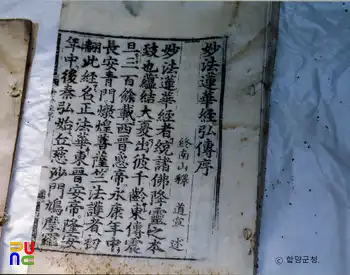 妙法蓮華經弘傳序
終南山釋 道宣 述
妙法蓮華經者統諸佛降靈之本
致也蘊結大夏出彼千齡東傳震
旦三百餘載西晉惠帝永康年中
長安青門燉煌菩薩竺法護者初
翻此經名正法華東晉安帝隆安
年中後秦弘始丘慈沙門鳩摩羅
© 함양군청